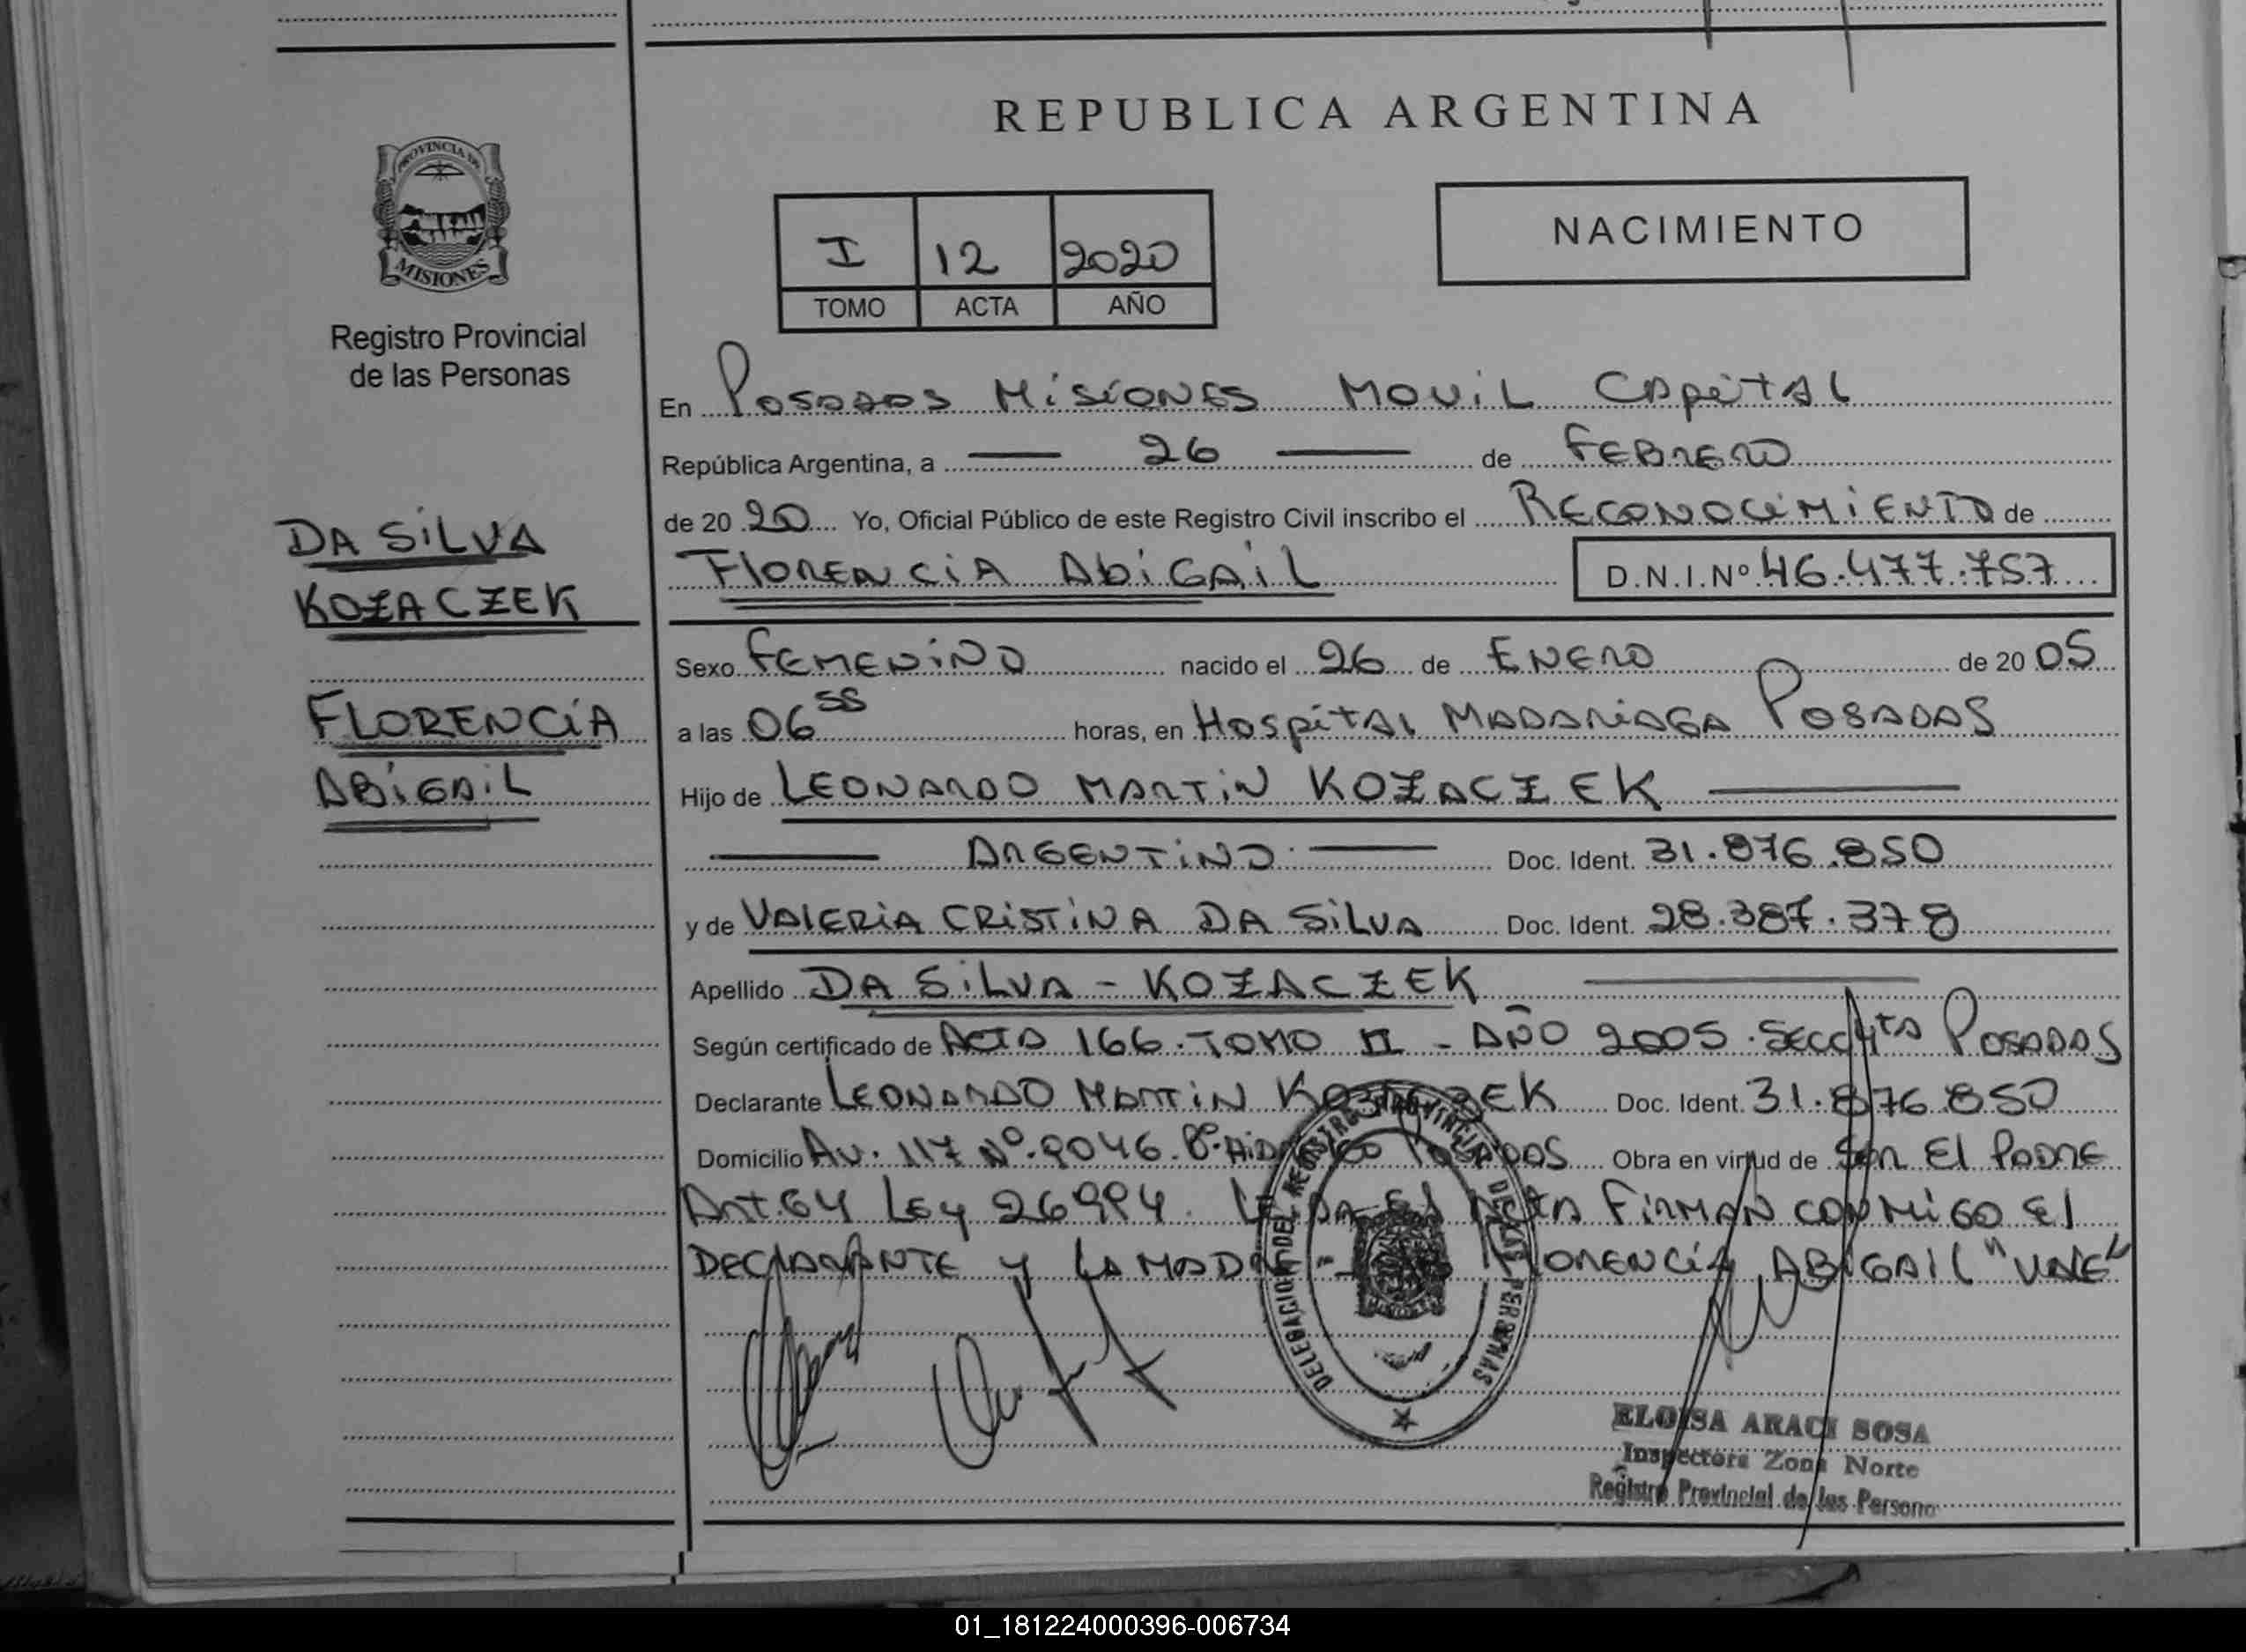 REPUBLICA ARGENTINA
PROVINCIA DE
MISIONES
Registro Provincial
de las Personas
I 12 2020
TOMO ACTA AÑO
NACIMIENTO
DA SILVA
KOZACZEK
FLORENCIA
ABIGAIL
En POSADAS MISIONES MOVIL CAPITAL
República Argentina, a 26 de FEBRERO
de 20 20 Yo, Oficial Público de este Registro Civil inscribo el RECONOCIMIENTO de
FLORENCIA ABIGAIL D.N.I.Nº 46.477.757
Sexo FEMENINO nacido el 26 de ENERO de 20 05
a las 06 55 horas, en HOSPITAL MADARIAGA POSADAS
Hijo de LEONARDO MARTIN KOZACZEK
ARGENTINO Doc. Ident. 31.876.850
y de VALERIA CRISTINA DA SILVA Doc. Ident. 28.387.378
Apellido DA SILVA - KOZACZEK
Según certificado de ACTA 166. TOMO II - AÑO 2005. SECC 4ta POSADAS
Declarante LEONARDO MARTIN KOZACZEK Doc. Ident. 31.876.850
Domicilio AV. 117 Nº 9046. Bº POSADAS Obra en virtud de SER EL PADRE
ART.64 LEY 26994. LEIDA EL ACTA FIRMAN CONMIGO EL
DECLARANTE Y LA MADRE - FLORENCIA ABIGAIL "VALE"
DELEGACION DEL REGISTRO PROVINCIAL DE LAS PERSONAS
ELOISA ARACI SOSA
Inspectora Zona Norte
Registro Provincial de las Persona
01_181224000396-006734